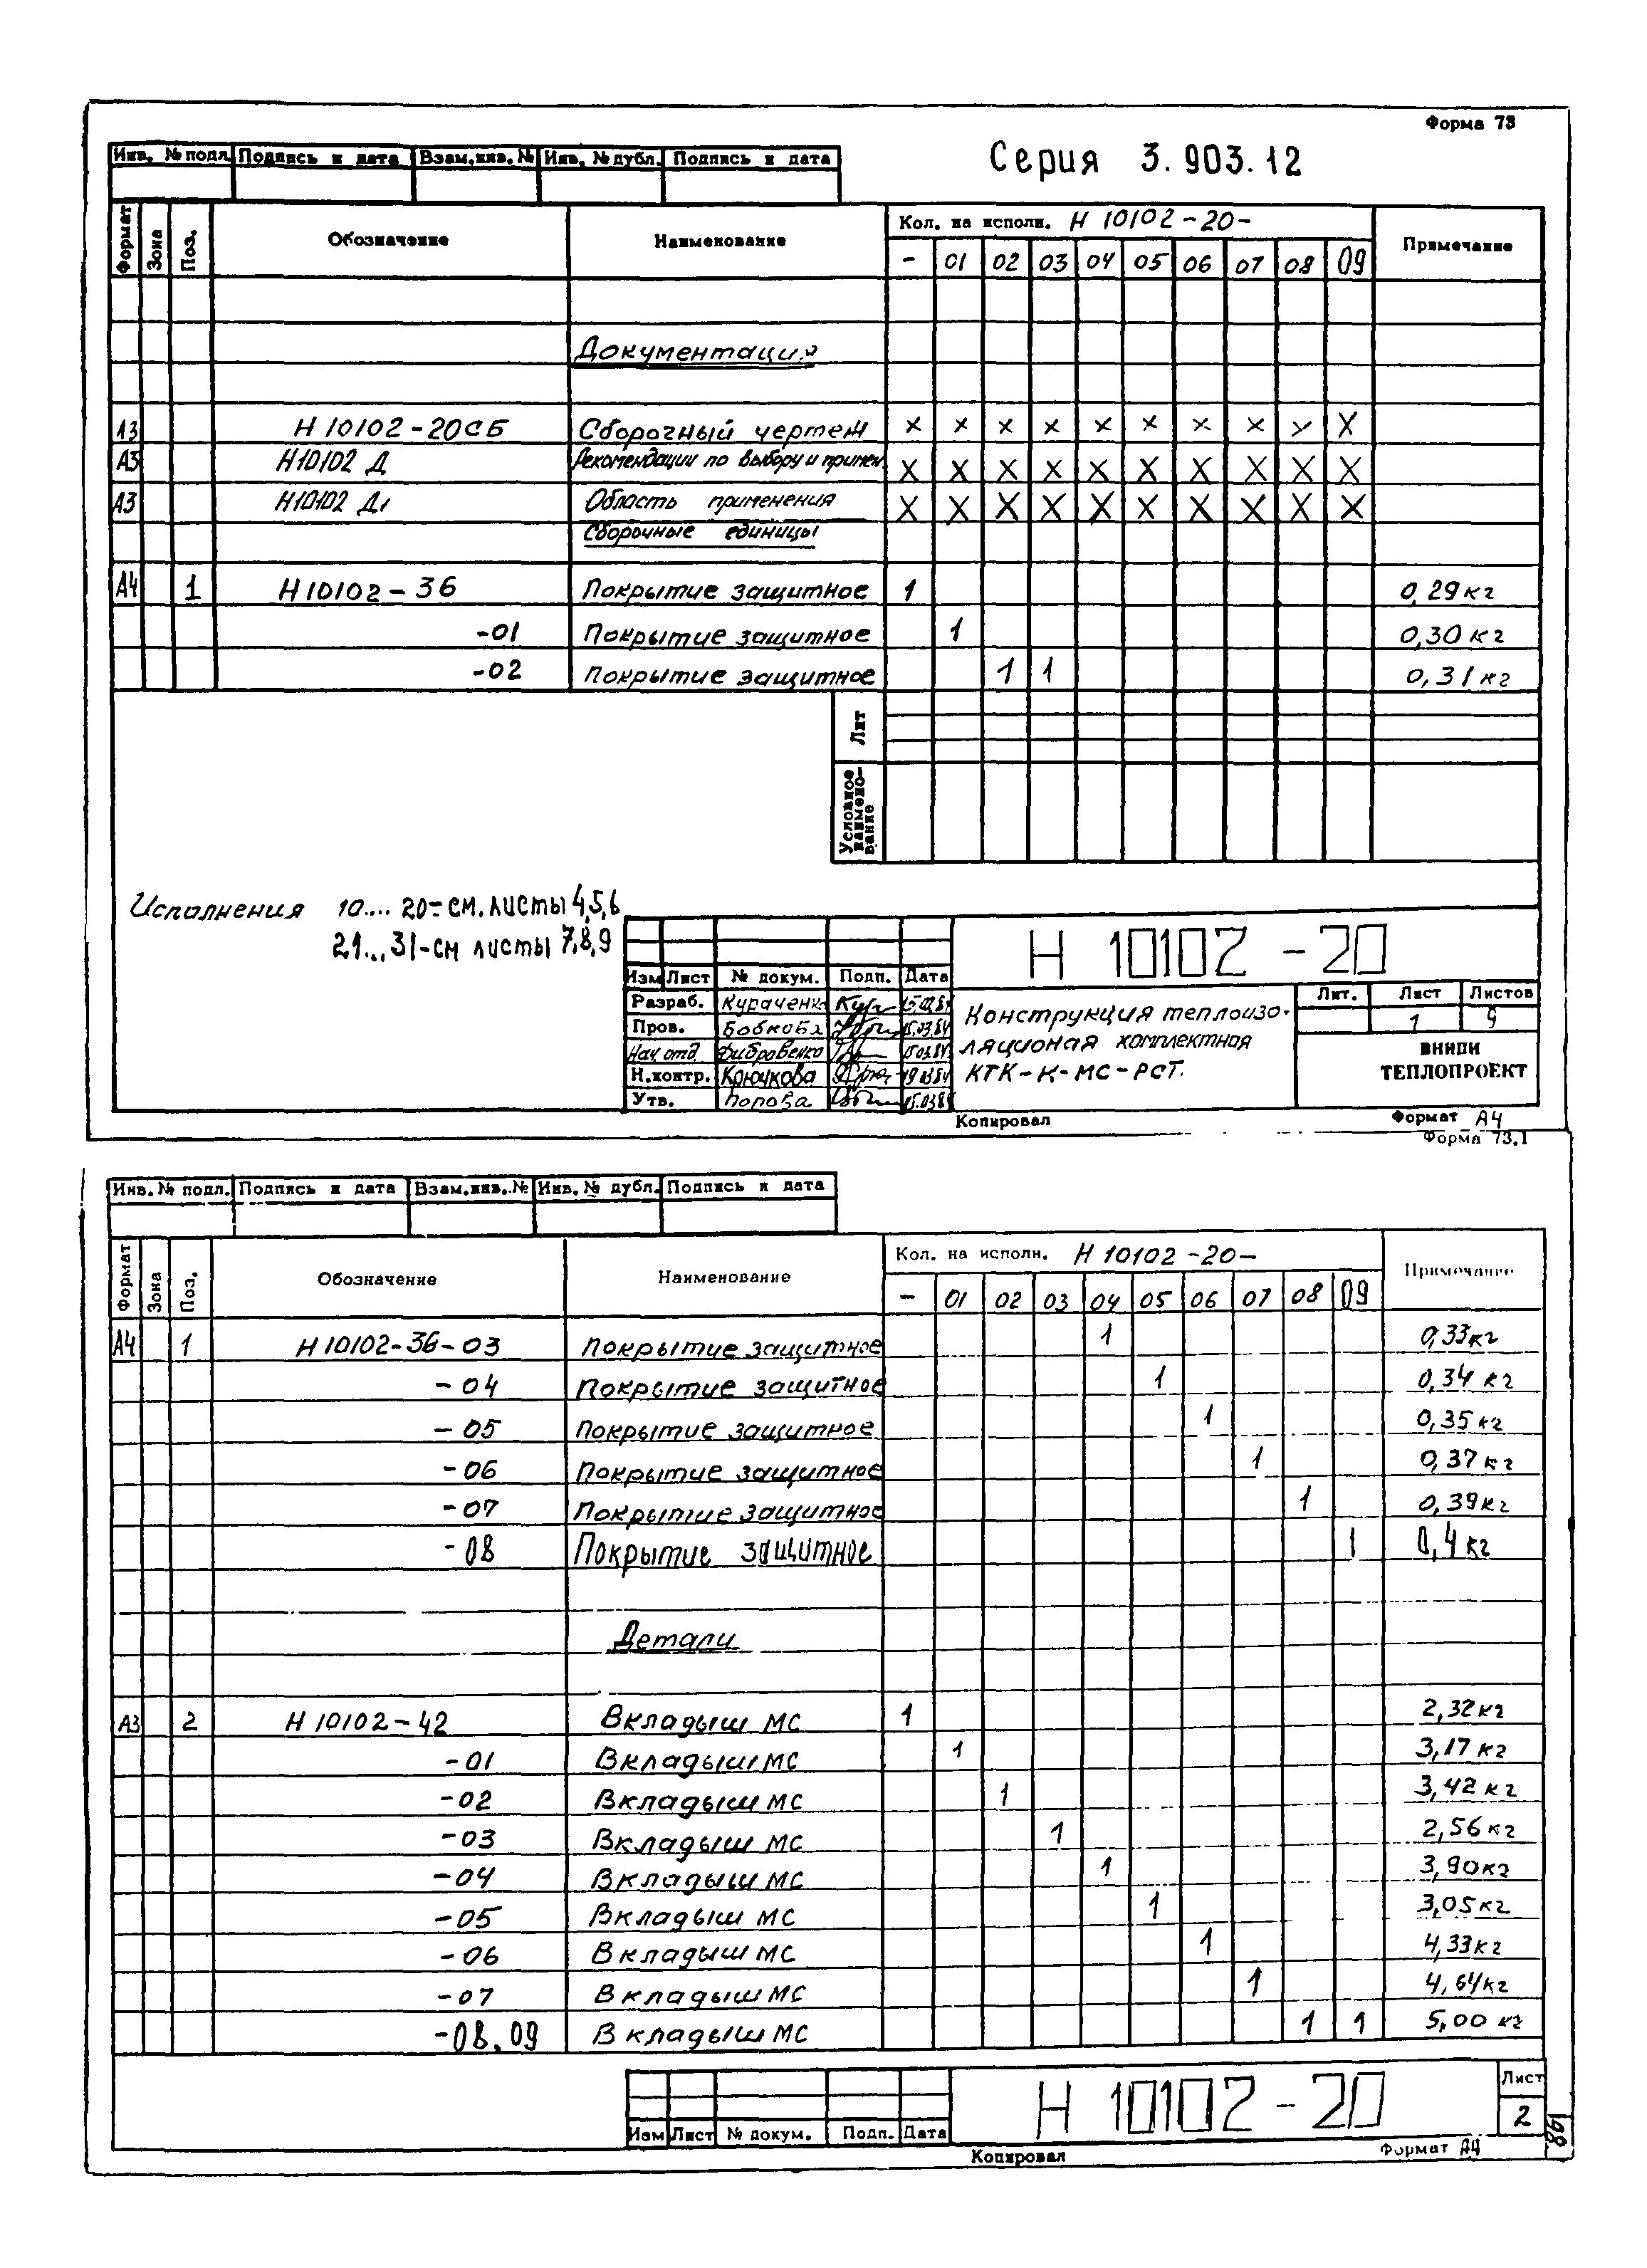 Форма 73
Инв. № подл. Подпись и дата Взам.инв. № Инв. № дубл. Подпись и дата
Серия 3.903.12
Формат Зона Поз. Обозначение Наименование Кол. на исполн. Н 10102-20- Примечание
- 01 02 03 04 05 06 07 08 09
Документация
А3 Н 10102-20СБ Сборочный чертеж X X X X X X X X X X
А3 Н10102 Д Рекомендации по выбору и примен X X X X X X X X X X
А3 Н10102 Д1 Область применения X X X X X X X X X X
Сборочные единицы
А4 1 Н10102-36 Покрытие защитное 1 0,29 кг
-01 Покрытие защитное 1 0,30 кг
-02 Покрытие защитное 1 1 0,31 кг
Лит
Условное наимено-вание
Исполнения 10.... 20-см. листы 4,5,6
21...31-см листы 7,8,9
Н 10102-20
Изм Лист № докум. Подп. Дата
Разраб. Кураченко
Пров. Бобкова
Нач. отд. Фибровенко
Н.контр. Крючкова
Утв. Попова
Конструкция теплоизо-
ляционая комплектная
КТК-К-МС-РСТ.
Лит. Лист Листов
1 9
ВНИПИ
ТЕПЛОПРОЕКТ
Копировал Формат А4
Форма 73.1
Инв. № подл. Подпись и дата Взам.инв. № Инв. № дубл. Подпись и дата
Формат Зона Поз. Обозначение Наименование Кол. на исполн. Н 10102-20- Примечание
- 01 02 03 04 05 06 07 08 09
А4 1 Н10102-36-03 Покрытие защитное 1 0,33кг
-04 Покрытие защитное 1 0,34 кг
-05 Покрытие защитное 1 0,35 кг
-06 Покрытие защитное 1 0,37 кг
-07 Покрытие защитное 1 0,39кг
-08 Покрытие защитное 1 0,4 кг
Детали
А3 2 Н 10102-42 Вкладыш МС 1 2,32кг
-01 Вкладыш МС 1 3,17 кг
-02 Вкладыш МС 1 3,42 кг
-03 Вкладыш МС 1 2,56 кг
-04 Вкладыш МС 1 3,90кг
-05 Вкладыш МС 1 3,05кг
-06 Вкладыш МС 1 4,33кг
-07 Вкладыш МС 1 4,64кг
-08.09 Вкладыш МС 1 1 5,00 кг
Н 10102-20
Лист
2
Изм Лист № докум. Подп. Дата
Копировал Формат А4
198